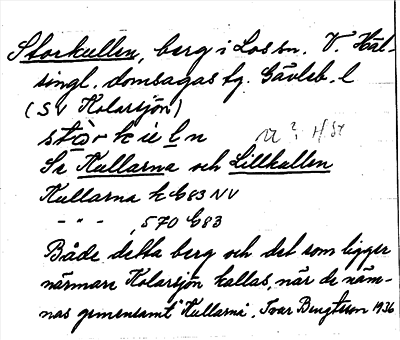 Storkullen, berg i Los sn. V. Häl-
singl. domsagas tg. Gävleb. l
(SV Kolarsjön)
Se Kullarna och Lillkullen
Kullarna k G83 NV
- " - " - , 570 G83
Både detta berg och det som ligger
närmare Kolarsjön kallas, när de näm-
nas gemensamt "Kullarna". Ivar Bengtsson 1936